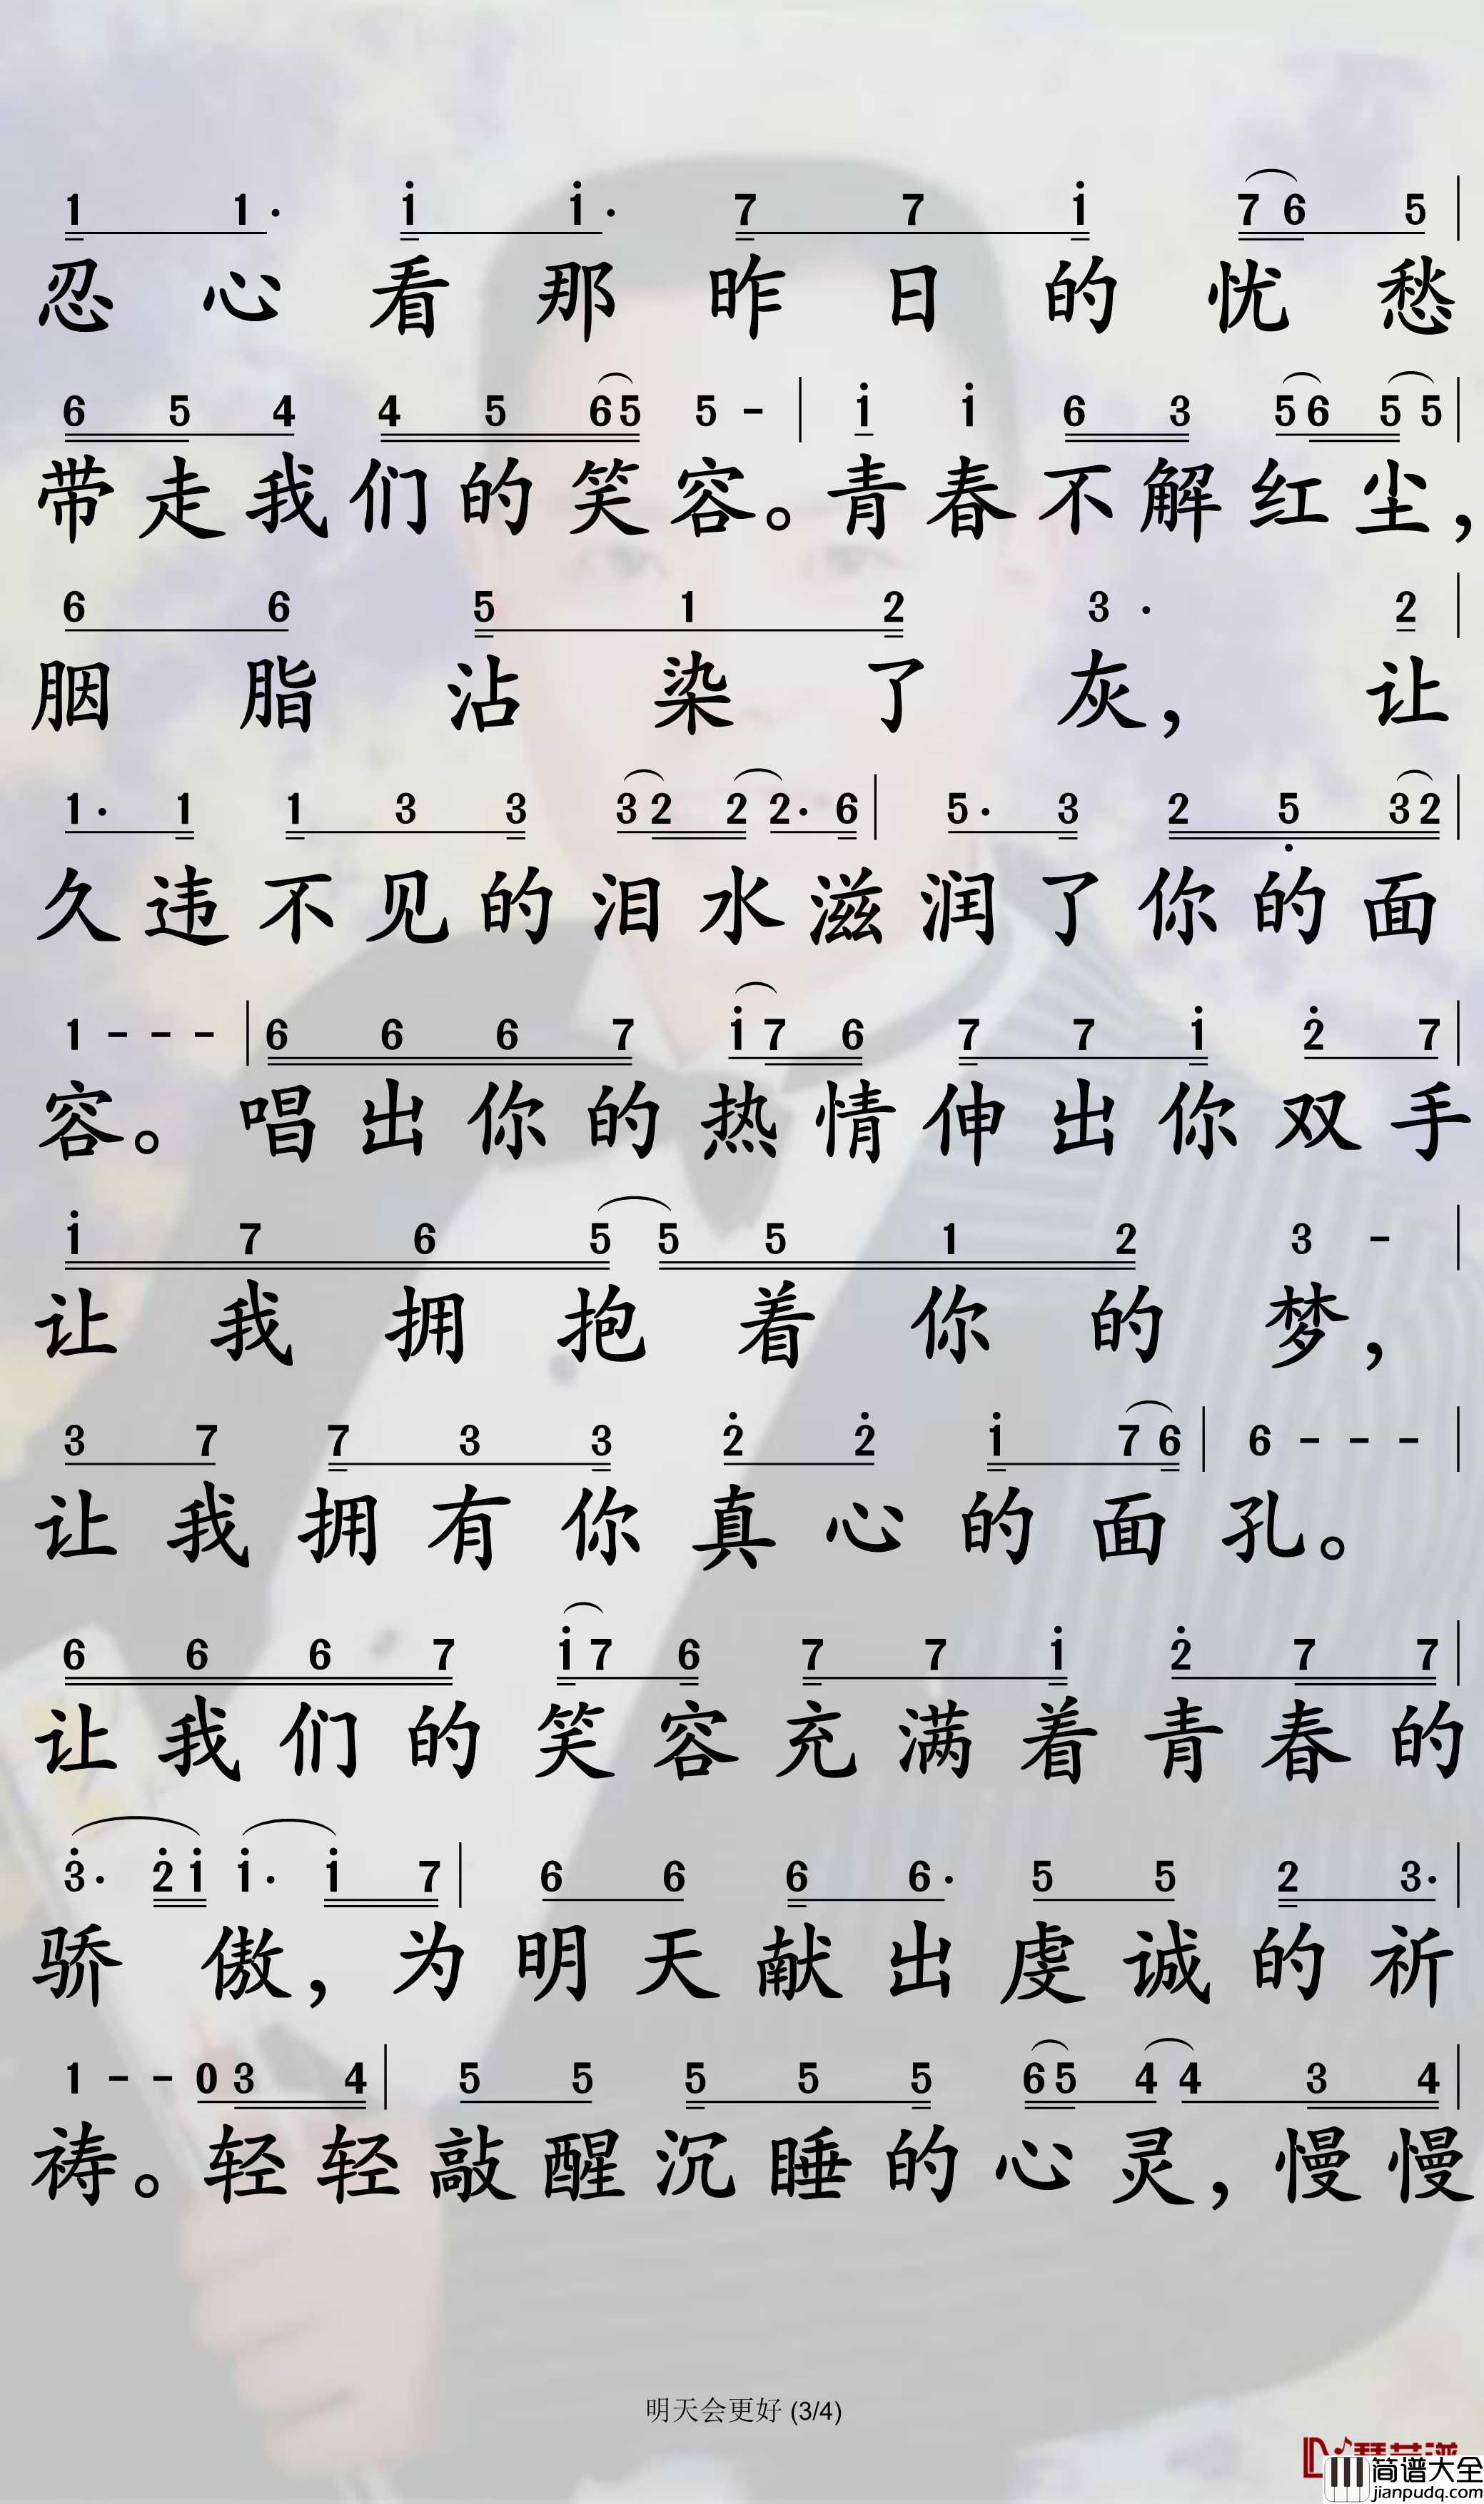 1 1· i i· 7 7 i 7 6 5 |
忍心看那昨日的忧愁
6 5 4 4 5 6 5 5 - | i i 6 3 5 6 5 5 |
带走我们的笑容。青春不解红尘,
6 6 5 1 2 3 · 2 |
胭脂沾染了灰,让
1· 1 1 3 3 3 2 2 2· 6 | 5· 3 2 5 3 2 |
久违不见的泪水滋润了你的面
1 - - - | 6 6 6 7 i 7 6 7 7 i 2 7 |
容。唱出你的热情伸出你双手
i 7 6 5 5 5 1 2 3 - |
让我拥抱着你的梦,
3 7 7 3 3 2 2 i 7 6 | 6 - - - |
让我拥有你真心的面孔。
6 6 6 7 i 7 6 7 7 i 2 7 7 |
让我们的笑容充满着青春的
3· 2 i i· i 7 | 6 6 6 6· 5 5 2 3· |
骄傲,为明天献出虔诚的祈
1 - - 0 3 4 | 5 5 5 5 5 6 5 4 4 3 4 |
祷。轻轻敲醒沉睡的心灵,慢慢
明天会更好 (3/4)
简谱大全
jianpudq.com